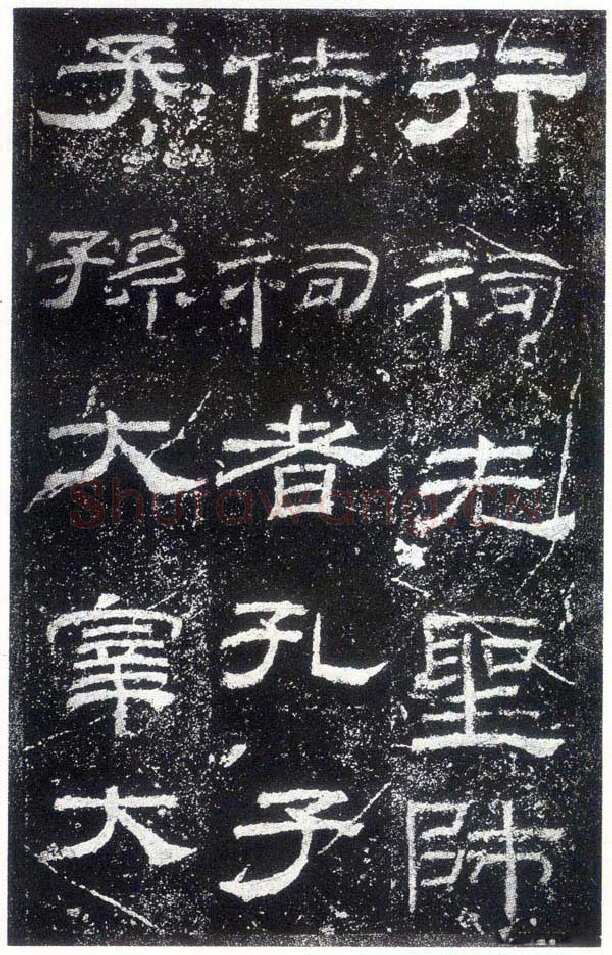 行祠先聖師
侍祠者孔子
子孫大宰大
shufawang.CN